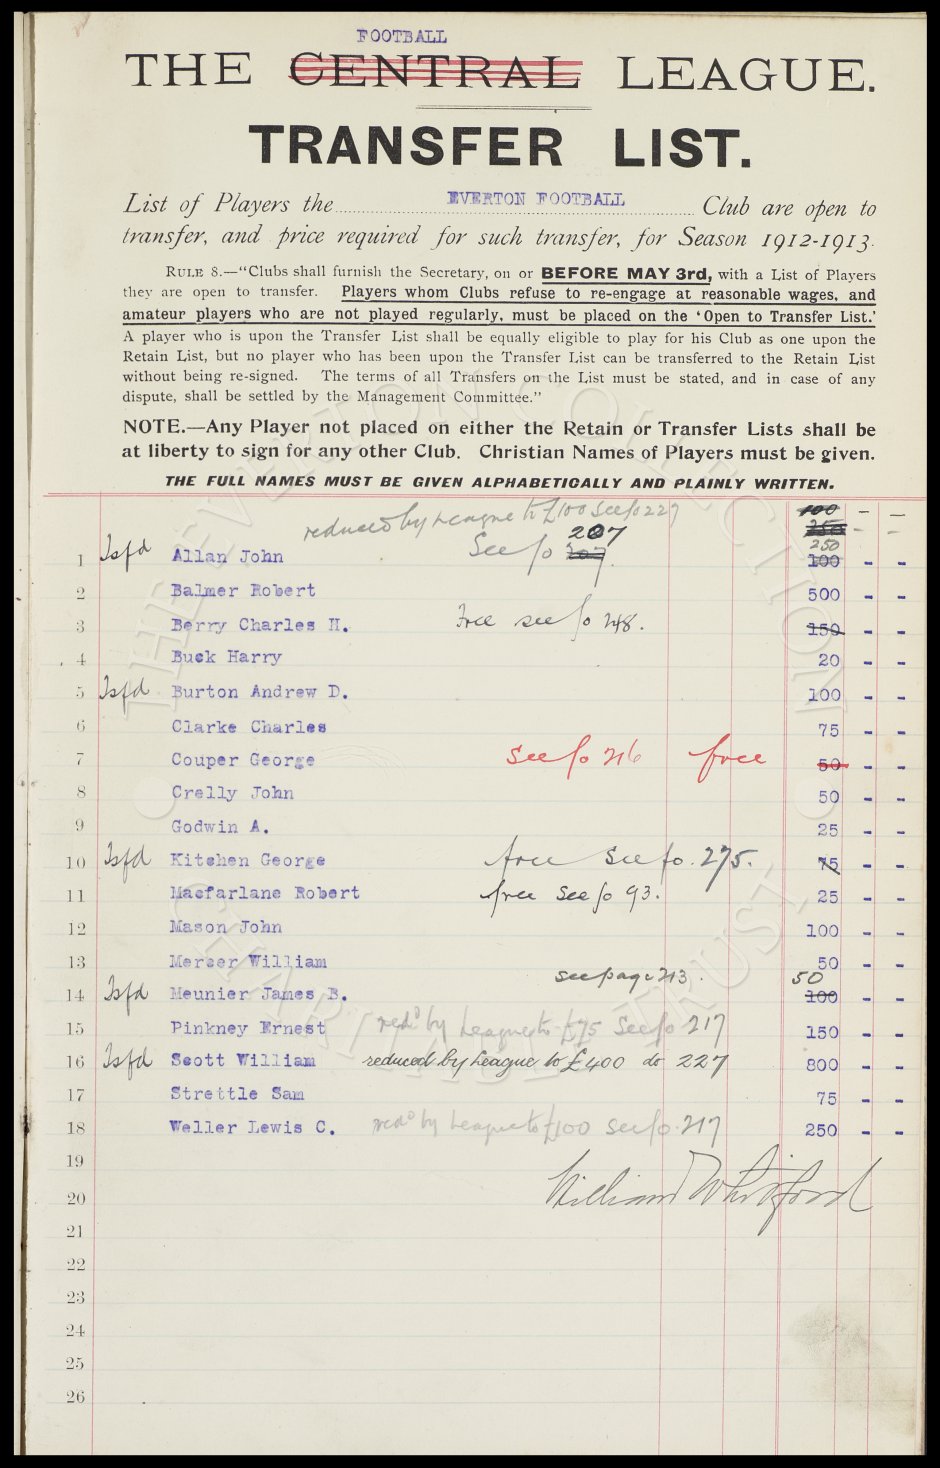 FOOTBALL
THE CENTRAL LEAGUE.
TRANSFER LIST.
List of Players the EVERTON FOOTBALL Club are open to
transfer, and price required for such transfer, for Season 1912-1913.
RULE 8.—"Clubs shall furnish the Secretary, on or BEFORE MAY 3rd, with a List of Players
they are open to transfer. Players whom Clubs refuse to re-engage at reasonable wages, and
amateur players who are not played regularly, must be placed on the 'Open to Transfer List.'
A player who is upon the Transfer List shall be equally eligible to play for his Club as one upon the
Retain List, but no player who has been upon the Transfer List can be transferred to the Retain List
without being re-signed. The terms of all Transfers on the List must be stated, and in case of any
dispute, shall be settled by the Management Committee."
NOTE.—Any Player not placed on either the Retain or Transfer Lists shall be
at liberty to sign for any other Club. Christian Names of Players must be given.
THE FULL NAMES MUST BE GIVEN ALPHABETICALLY AND PLAINLY WRITTEN.
reduced by League to £100 See fo 227 100 - -
207 250 -
See fo 207 250
1 Tsfd Allan John 100 - -
2 Balmer Robert 500 - -
3 Berry Charles H. Free see fo 248. 150 - -
4 Buck Harry 20 - -
5 Tsfd Burton Andrew D. 100 - -
6 Clarke Charles 75 - -
7 Couper George See fo 216 free 50 - -
8 Crelly John 50 - -
9 Godwin A. 25 - -
10 Tsfd Kitchen George free See fo. 275. 75 - -
11 Macfarlane Robert free See fo 93. 25 - -
12 Mason John 100 - -
13 Mercer William 50 - -
see page 213. 50
14 Tsfd Meunier James B. 100 - -
15 Pinkney Ernest redd by League to £75 See fo 217 150 - -
16 Tsfd Scott William reduced by League to £400 do 227 800 - -
17 Strettle Sam 75 - -
18 Weller Lewis C. redd by League to £100 See fo. 217 250 - -
19
William Whitford
20
21
22
23
24
25
26
THE EVERTON COLLECTION
CHARITABLE TRUST